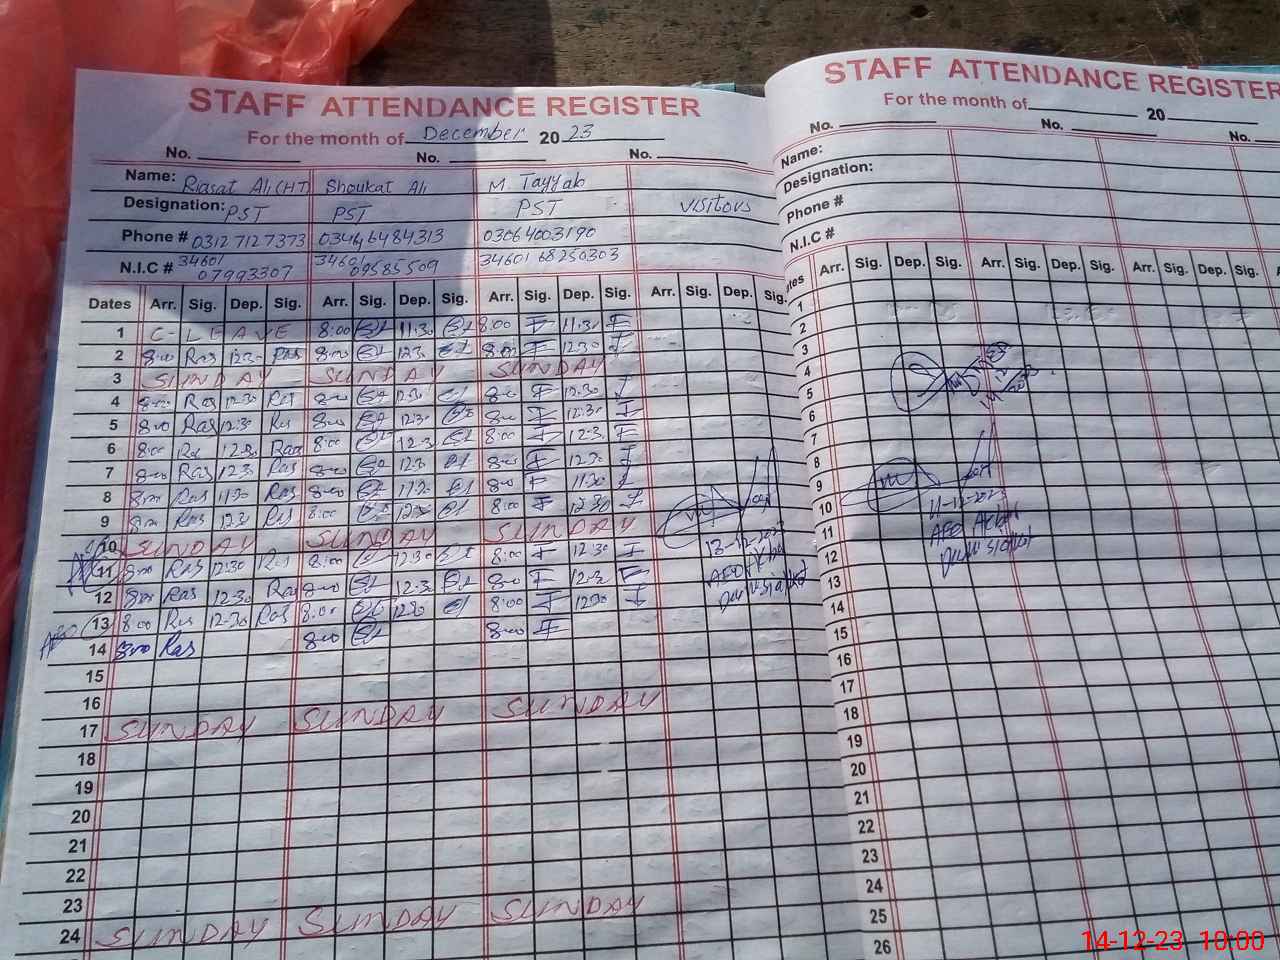 STAFF ATTENDANCE REGISTER
For the month of December 20 23
No. No. No.
Name: Riasat Ali (HT) Shoukat Ali M. Tayyab
Designation: PST PST PST Visitors
Phone # 03127127373 03446484313 03064003190
N.I.C # 34601 07993307 34601 09585509 34601 68250303
Dates Arr. Sig. Dep. Sig. Arr. Sig. Dep. Sig. Arr. Sig. Dep. Sig. Arr. Sig. Dep. Sig.
1 C-LEAVE 8:00 11:30 8:00 11:30
2 8:00 Ras 12:30 Ras 8:00 12:30 8:00 12:30
3 SUNDAY SUNDAY SUNDAY
4 8:00 Ras 12:30 Ras 8:00 12:30 8:00 12:30
5 8:00 Ras 12:30 Ras 8:00 12:30 8:00 12:30
6 8:00 Ras 12:30 Ras 8:00 12:30 8:00 12:30
7 8:00 Ras 12:30 Ras 8:00 12:30 8:00 12:30
8 8:00 Ras 11:30 Ras 8:00 11:30 8:00 11:30
9 8:00 Ras 12:30 Ras 8:00 12:30 8:00 12:30
10 SUNDAY SUNDAY SUNDAY
11 8:00 Ras 12:30 Ras 8:00 12:30 8:00 12:30
12 8:00 Ras 12:30 Ras 8:00 12:30 8:00 12:30
13 8:00 Ras 12:30 Ras 8:00 12:30 8:00 12:30
14 8:00 Ras 8:00 8:00
15
16
17 SUNDAY SUNDAY SUNDAY
18
19
20
21
22
23
24 SUNDAY SUNDAY SUNDAY
13-12-2023
AEO
STAFF ATTENDANCE REGISTER
For the month of 20
No. No. No.
Name:
Designation:
Phone #
N.I.C #
Arr. Sig. Dep. Sig. Arr. Sig. Dep. Sig. Arr. Sig. Dep. Sig.
1
2
3
4
5
6
7
8
9
10
11
12
13
14
15
16
17
18
19
20
21
22
23
24
25
26
11-12-2023
AEO
14-12-23 10:00